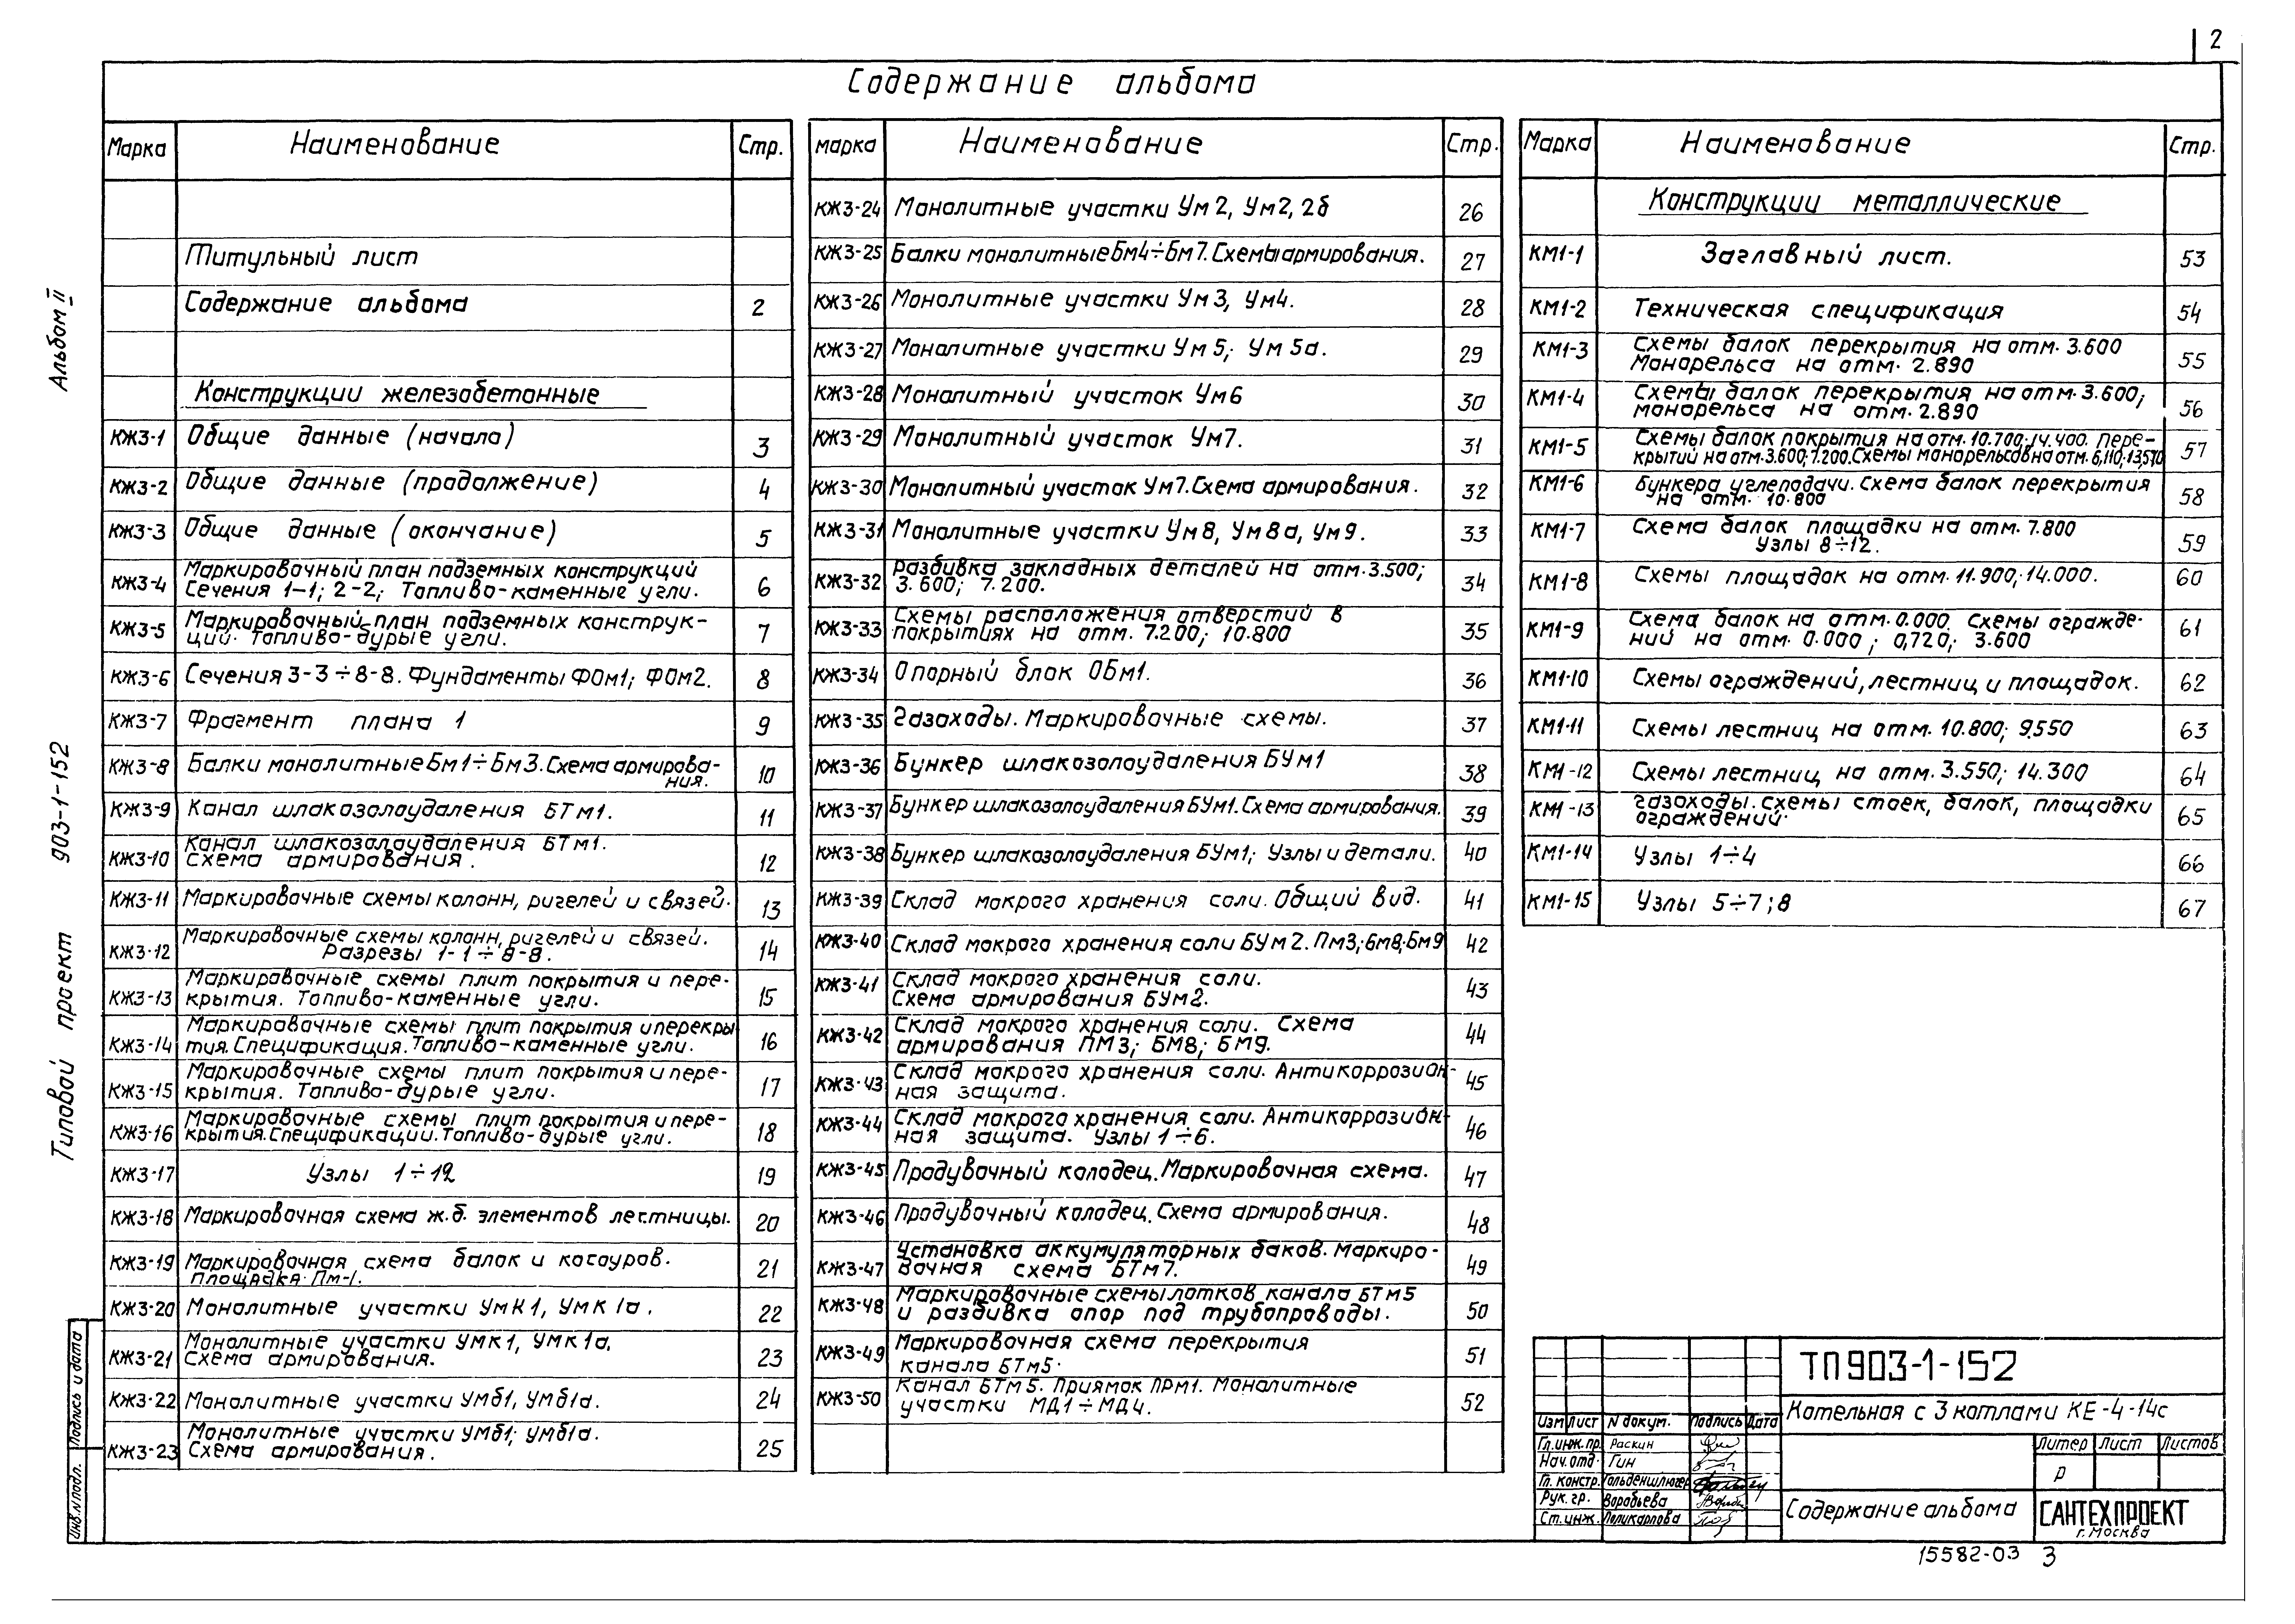 2
Содержание альбома
Марка Наименование Стр.
Титульный лист
Содержание альбома 2
Конструкции железобетонные
КЖ3-1 Общие данные (начало) 3
КЖ3-2 Общие данные (продолжение) 4
КЖ3-3 Общие данные (окончание) 5
КЖ3-4 Маркировочный план подземных конструкций
Сечения 1-1; 2-2; Топливо-каменные угли. 6
КЖ3-5 Маркировочный план подземных конструк-
ций. Топливо-бурые угли. 7
КЖ3-6 Сечения 3-3÷8-8. Фундаменты ФОм1; ФОм2. 8
КЖ3-7 Фрагмент плана 1 9
КЖ3-8 Балки монолитные Бм1÷Бм3. Схема армирова-
ния. 10
КЖ3-9 Канал шлакозолоудаления БТм1. 11
КЖ3-10 Канал шлакозолоудаления БТм1.
Схема армирования. 12
КЖ3-11 Маркировочные схемы колонн, ригелей и связей. 13
КЖ3-12 Маркировочные схемы колонн, ригелей и связей.
Разрезы 1-1÷8-8. 14
КЖ3-13 Маркировочные схемы плит покрытия и пере-
крытия. Топливо-каменные угли. 15
КЖ3-14 Маркировочные схемы плит покрытия и перекры
тия. Спецификация. Топливо-каменные угли. 16
КЖ3-15 Маркировочные схемы плит покрытия и пере-
крытия. Топливо-бурые угли. 17
КЖ3-16 Маркировочные схемы плит покрытия и пере-
крытия. Спецификации. Топливо-бурые угли. 18
КЖ3-17 Узлы 1÷12 19
КЖ3-18 Маркировочная схема ж.б. элементов лестницы. 20
КЖ3-19 Маркировочная схема балок и косоуров.
Площадка Пм-1. 21
КЖ3-20 Монолитные участки УмК1, УмК1а. 22
КЖ3-21 Монолитные участки УМК1, УМК1а.
Схема армирования. 23
КЖ3-22 Монолитные участки Умб1, Умб1а. 24
КЖ3-23 Монолитные участки Умб1; Умб1а.
Схема армирования. 25
марка Наименование Стр.
КЖ3-24 Монолитные участки Ум2, Ум2, 2б 26
КЖ3-25 Балки монолитные Бм4÷Бм7. Схемы армирования. 27
КЖ3-26 Монолитные участки Ум3, Ум4. 28
КЖ3-27 Монолитные участки Ум5; Ум5а. 29
КЖ3-28 Монолитный участок Ум6 30
КЖ3-29 Монолитный участок Ум7. 31
КЖ3-30 Монолитный участок Ум7. Схема армирования. 32
КЖ3-31 Монолитные участки Ум8, Ум8а, Ум9. 33
КЖ3-32 Разбивка закладных деталей на отм. 3.500;
3.600; 7.200. 34
КЖ3-33 Схемы расположения отверстий в
покрытиях на отм. 7.200; 10.800 35
КЖ3-34 Опорный блок ОБм1. 36
КЖ3-35 Газоходы. Маркировочные схемы. 37
КЖ3-36 Бункер шлакозолоудаления БУм1 38
КЖ3-37 Бункер шлакозолоудаления БУм1. Схема армирования. 39
КЖ3-38 Бункер шлакозолоудаления БУм1; Узлы и детали. 40
КЖ3-39 Склад мокрого хранения соли. Общий вид. 41
КЖ3-40 Склад мокрого хранения соли БУм2. Пм3; Бм8; Бм9 42
КЖ3-41 Склад мокрого хранения соли.
Схема армирования БУм2. 43
КЖ3-42 Склад мокрого хранения соли. Схема
армирования ПМ3; БМ8; БМ9. 44
КЖ3-43 Склад мокрого хранения соли. Антикоррозион-
ная защита. 45
КЖ3-44 Склад мокрого хранения соли. Антикоррозион-
ная защита. Узлы 1÷6. 46
КЖ3-45 Продувочный колодец. Маркировочная схема. 47
КЖ3-46 Продувочный колодец. Схема армирования. 48
КЖ3-47 Установка аккумуляторных баков. Маркиро-
вочная схема БТм7. 49
КЖ3-48 Маркировочные схемы лотков канала БТм5
и разбивка опор под трубопроводы. 50
КЖ3-49 Маркировочная схема перекрытия
канала БТм5. 51
КЖ3-50 Канал БТм5. Приямок ПРм1. Монолитные
участки МД1÷МД4. 52
Марка Наименование Стр.
Конструкции металлические
КМ1-1 Заглавный лист. 53
КМ1-2 Техническая спецификация 54
КМ1-3 Схемы балок перекрытия на отм. 3.600
Монорельса на отм. 2.890 55
КМ1-4 Схемы балок перекрытия на отм. 3.600;
монорельса на отм. 2.890 56
КМ1-5 Схемы балок покрытия на отм. 10.700; 14.400. Пере-
крытий на отм. 3.600; 7.200. Схемы монорельсов на отм. 6,110; 13,570 57
КМ1-6 Бункера углеподачи. Схема балок перекрытия
на отм. 10.800 58
КМ1-7 Схема балок площадки на отм. 7.800
Узлы 8÷12. 59
КМ1-8 Схемы площадок на отм. 11.900; 14.000. 60
КМ1-9 Схема балок на отм. 0.000 Схемы огражде-
ний на отм. 0.000; 0,720; 3.600 61
КМ1-10 Схемы ограждений, лестниц и площадок. 62
КМ1-11 Схемы лестниц на отм. 10.800; 9.550 63
КМ1-12 Схемы лестниц на отм. 3.550; 14.300 64
КМ1-13 Газоходы. схемы стоек, балок, площадки
ограждений. 65
КМ1-14 Узлы 1÷4 66
КМ1-15 Узлы 5÷7; 8 67
Альбом II
Типовой проект 903-1-152
Подпись и дата
Инв. N подл.
ТП 903-1-152
Котельная с 3 котлами КЕ-4-14с
Изм Лист N докум. Подпись Дата
Гл. инж. пр. Раскин
Нач. отд. Гин
Гл. констр. Гольденшлюгер
Рук. гр. Воробьева
Ст. инж. Поликарпова
Литер Лист Листов
Р
Содержание альбома
САНТЕХПРОЕКТ
г. Москва
15582-03 3